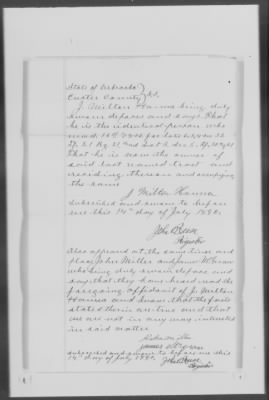 State of Nebraska
Custer County
J. Milton Hanna being duly
sworn deposes and says that
he is the identical person who
that he is now the owner of
said last named tract and
residing thereon and occupying
the same
J Milton Hanna
subscribed and sworn to before
me this 14th day of July 1890.
John Reese
Register
Also appeared at the same time and
place John Miller and
who being duly sworn depose and
say that they have heard read the
foregoing affidavit of J. Milton
Hanna and know that the facts
stated therein are true and that
we are not in any way interested
in said matter
subscribed and sworn to before me this
14th day of July 1890.
John Reese
Register